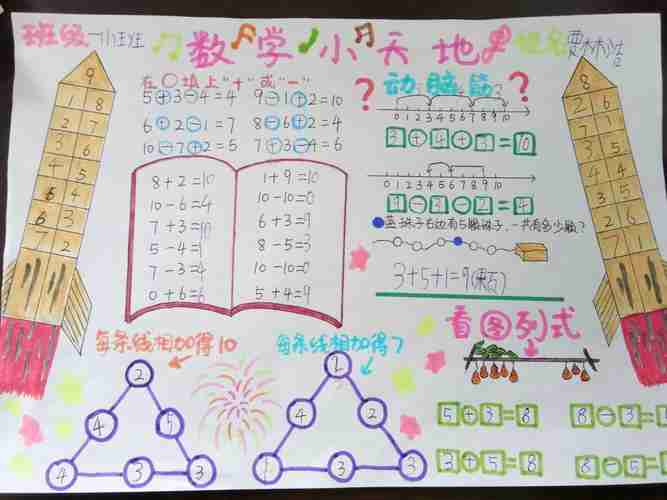 班级
数学小天地
姓名
在○填上"+"或"-"
5+3-4=4 9-1+2=10
6+2-1=7 8-6+2=4
10-7+2=5 7+3-4=6
8+2=10 1+9=10
10-6=4 10-10=0
7+3=10 6+3=9
5-4=1 8-5=3
7-3=4 10-10=0
0+6=6 5+4=9
动脑筋
?
?
0 1 2 3 4 5 6 7 8 9 10
3+4+3=10
0 1 2 3 4 5 6 7 8 9 10
9-3-2=4
蓝珠子右边有5颗珠子,一共有多少颗?
3+5+1=9(颗)
看图列式
5+3=8 8-3=
3+5=8 8-5=
每条线相加得10
2
4 5
4 3 3
每条线相加得7
1
4 2
3 3
9
1 8
2 7
3 6
4 5
5 4
6 3
7 2
8
4 4
3 5
2 6